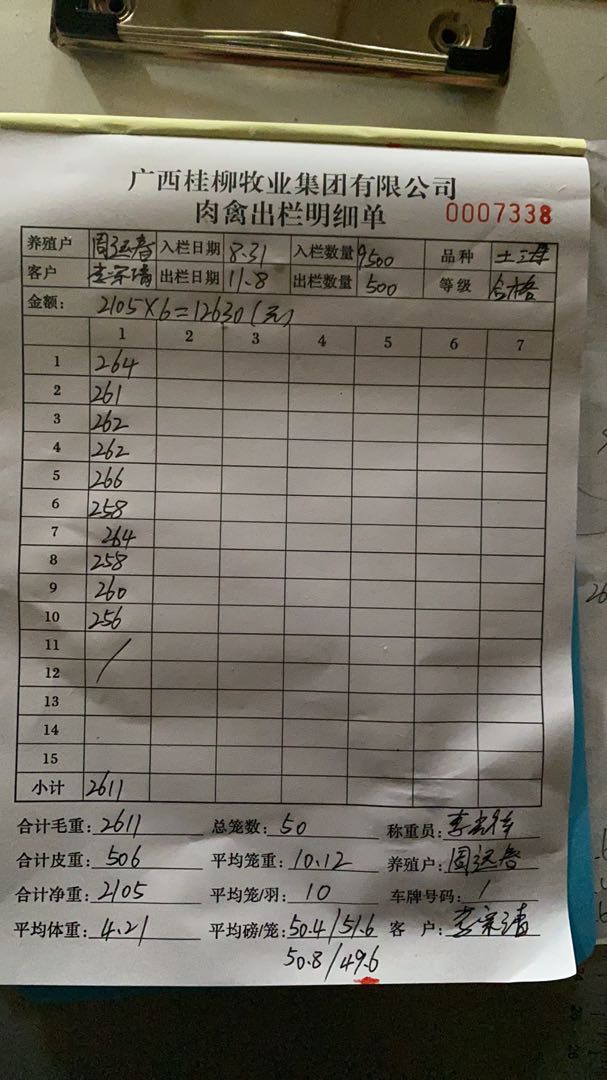 广西桂柳牧业集团有限公司
肉禽出栏明细单 0007338
养殖户 周远春 入栏日期 8.31 入栏数量 9500 品种 土2母
客户 出栏日期 11.8 出栏数量 500 等级 合格
金额: 2105×6=12630(元)
1 2 3 4 5 6 7
1 264
2 261
3 262
4 262
5 266
6 258
7 264
8 258
9 260
10 256
11 /
12
13
14
15
小计 2611
合计毛重: 2611 总笼数: 50 称重员:
合计皮重: 506 平均笼重: 10.12 养殖户: 周远春
合计净重: 2105 平均笼/羽: 10 车牌号码: /
平均体重: 4.21 平均磅/笼: 50.4/51.6 客 户:
50.8/49.6